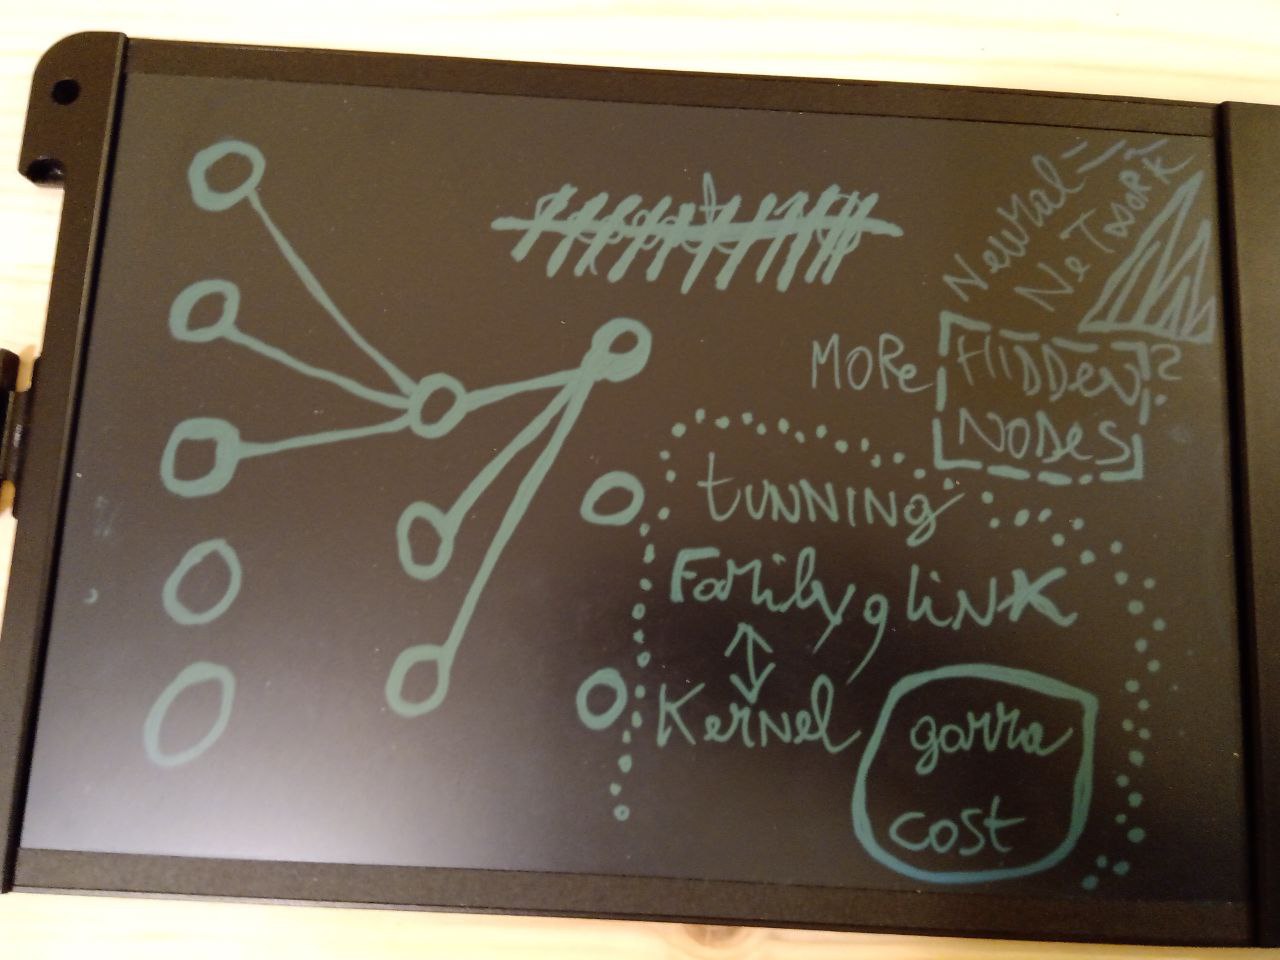 Newral
NeTworK
MORe HIDDeN ?
NODeS
tUNNING
Family, liNK
KerNel
gamma
cost